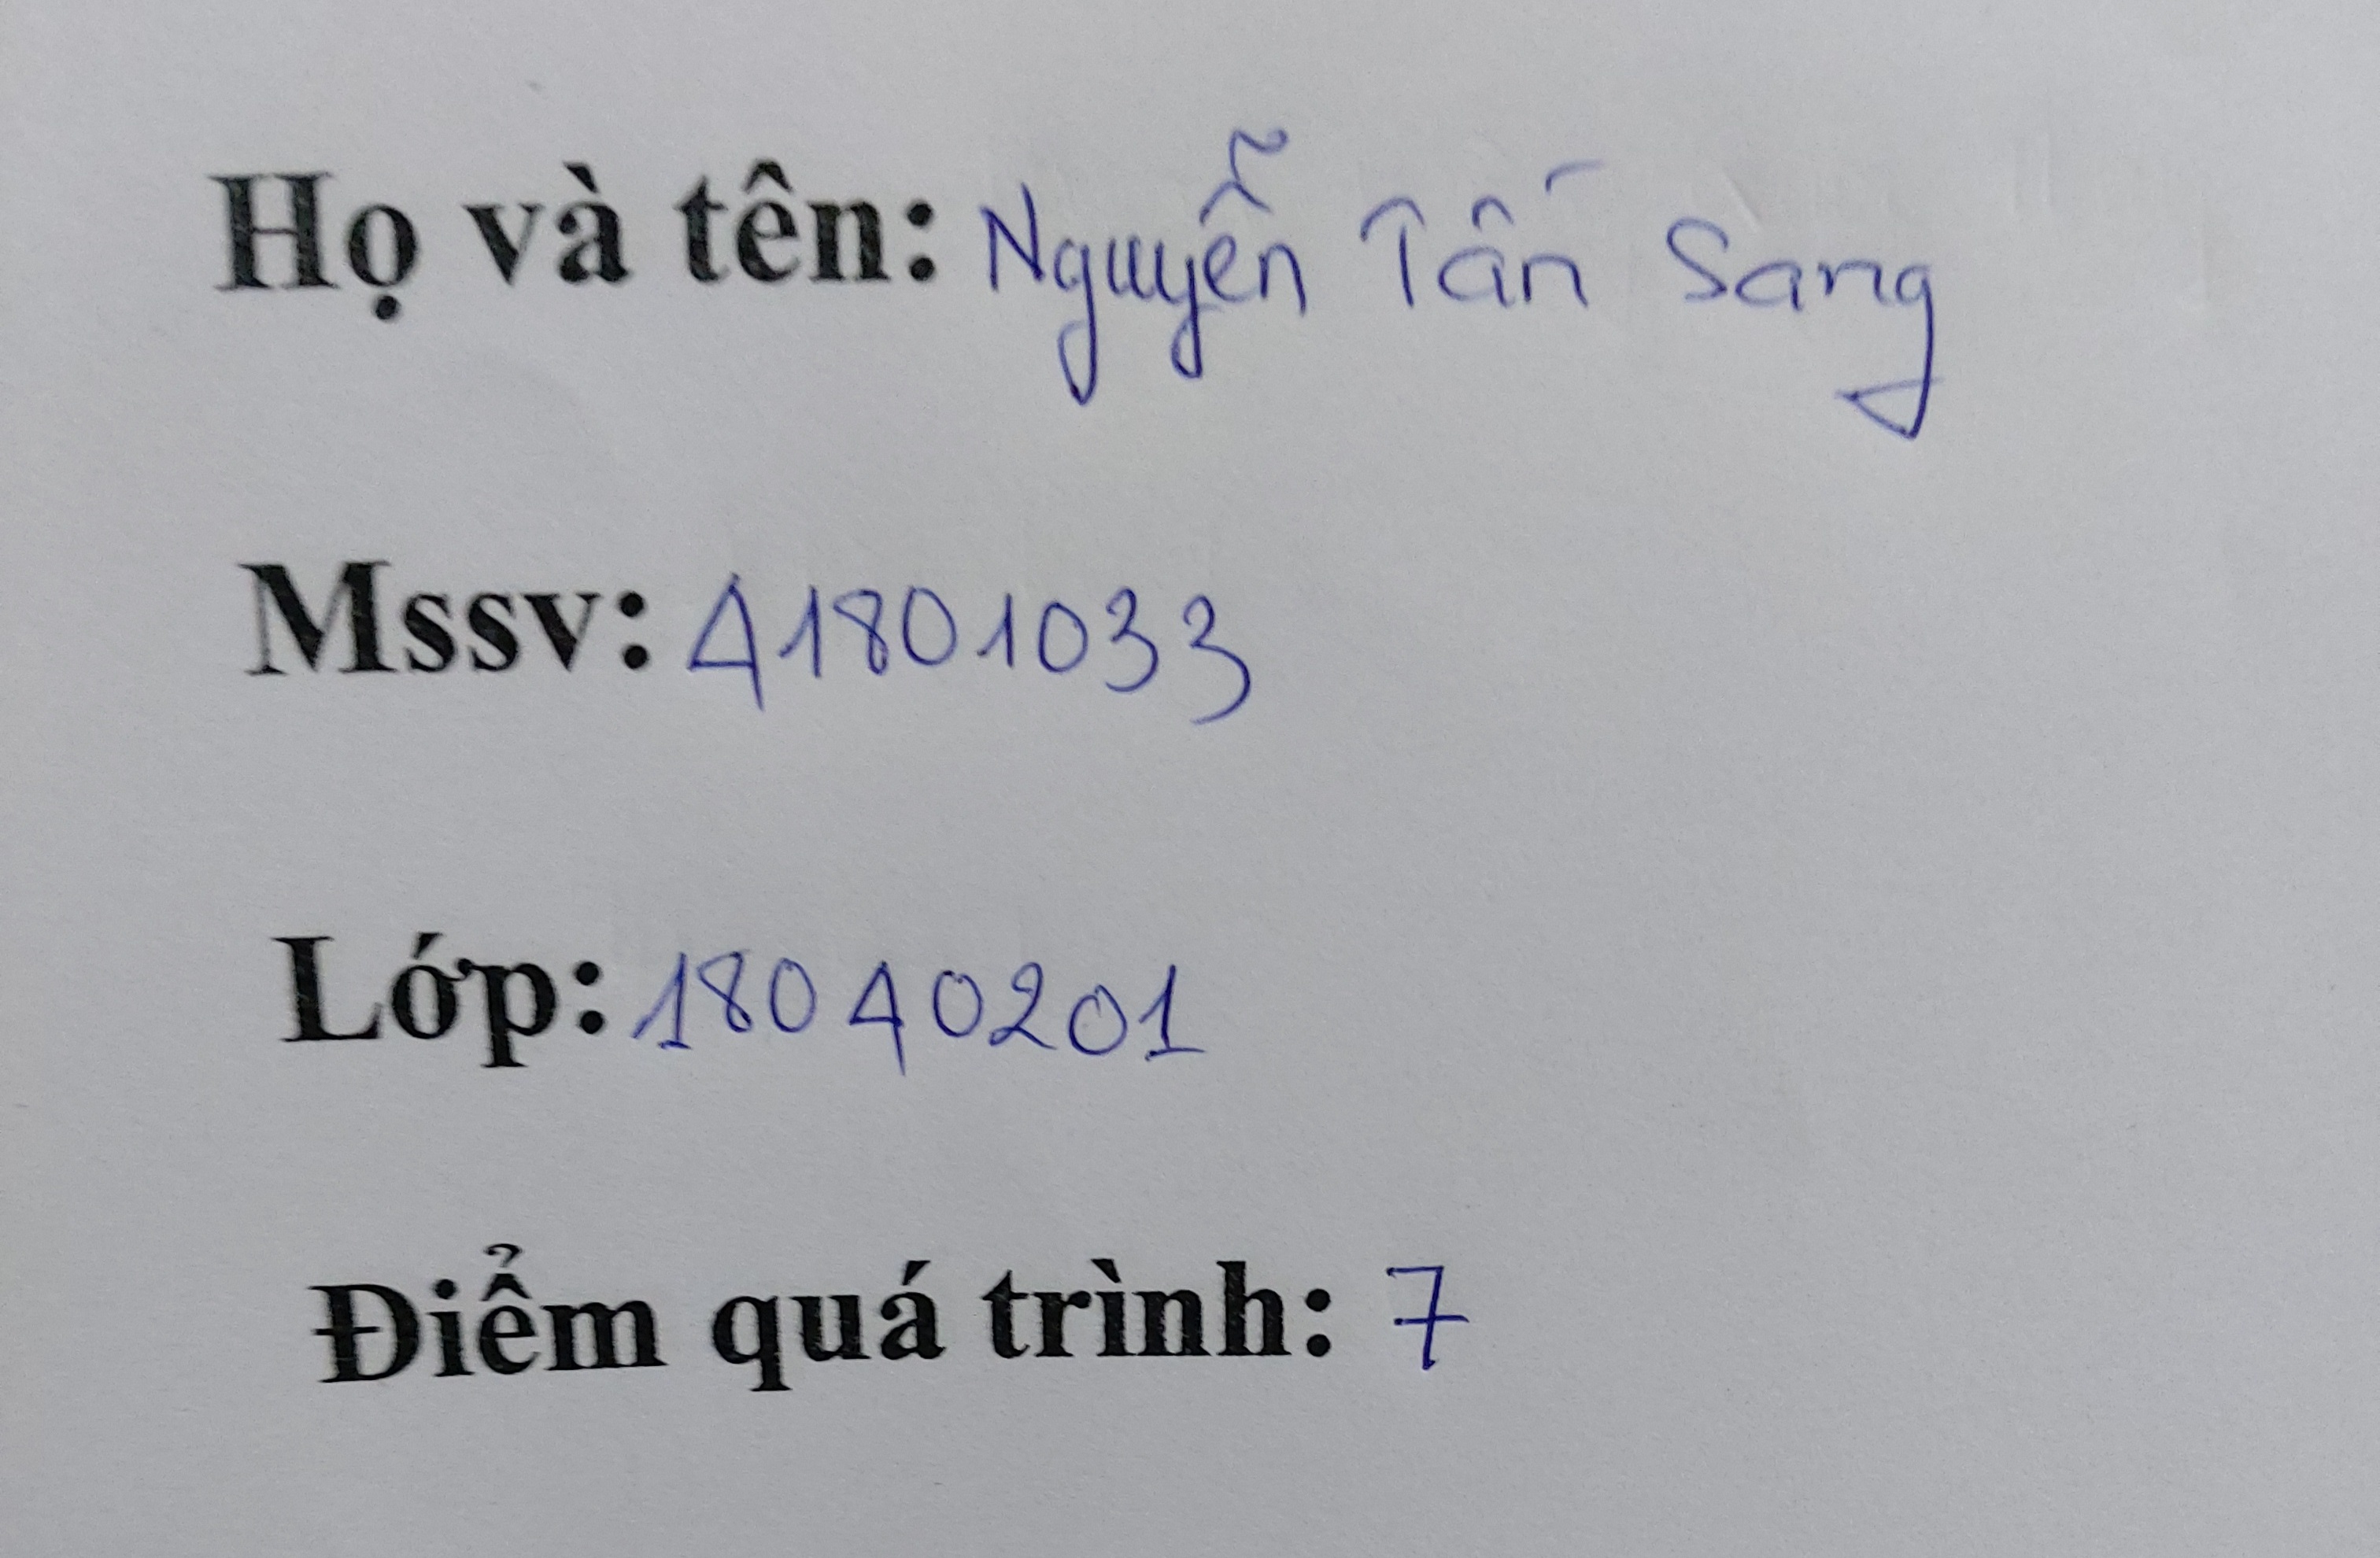 Họ và tên: Nguyễn Tấn Sang
Mssv: 41801033
Lớp: 18040201
Điểm quá trình: 7